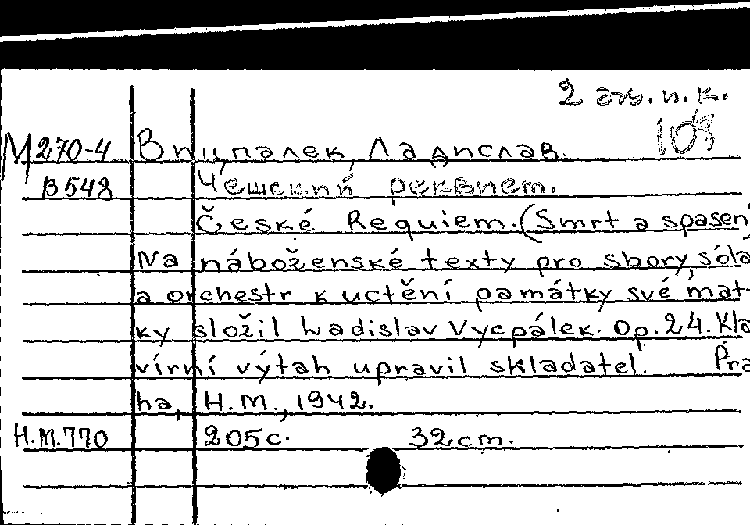 2 экз. н.к.
108
М270-4 Вицпалек, Ладислав.
В548 Чешский реквием.
České Requiem. (Smrt a spasení
Na náboženské texty pro sbory, sóla
a orchestr k uctění památky své mat-
ky složil Ladislav Vycpálek. Op. 24. Kla
vírní výtah upravil skladatel. Pra
ha, H.M., 1942.
H.M.770 205c. 32cm.